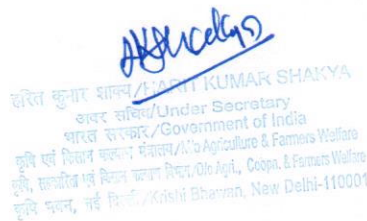 हरित कुमार शाक्य/HARIT KUMAR SHAKYA
अवर सचिव/Under Secretary
भारत सरकार/Government of India
कृषि एवं किसान कल्याण मंत्रालय/M/o Agriculture & Farmers Welfare
कृषि, सहकारिता एवं किसान कल्याण विभाग/D/o Agri., Coopn. & Farmers Welfare
कृषि भवन, नई दिल्ली/Krishi Bhawan, New Delhi-110001